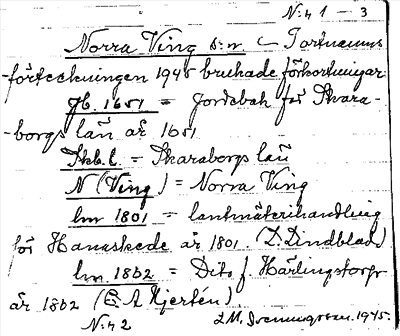 N:r 1 - 3
Norra Ving s:n
förteckningen 1945 brukade förkortningar
Jb. 1651 = Jordebok för Skara-
-borgs län år 1651
Skb.l. = Skaraborgs län
N (Ving) = Norra Ving
lm 1801 = lantmäterihandling
för Hanaskede år 1801. (D. Lindblad)
lm. 1862 = Dito f. Härlingstorp
år 1862 (A Hjertén)
N:r 2 1945.